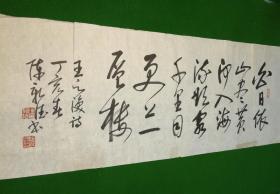 白日依
山尽黄
河入海
流欲穷
千里目
更上一
层楼
王之涣诗
丁亥春
陈德书